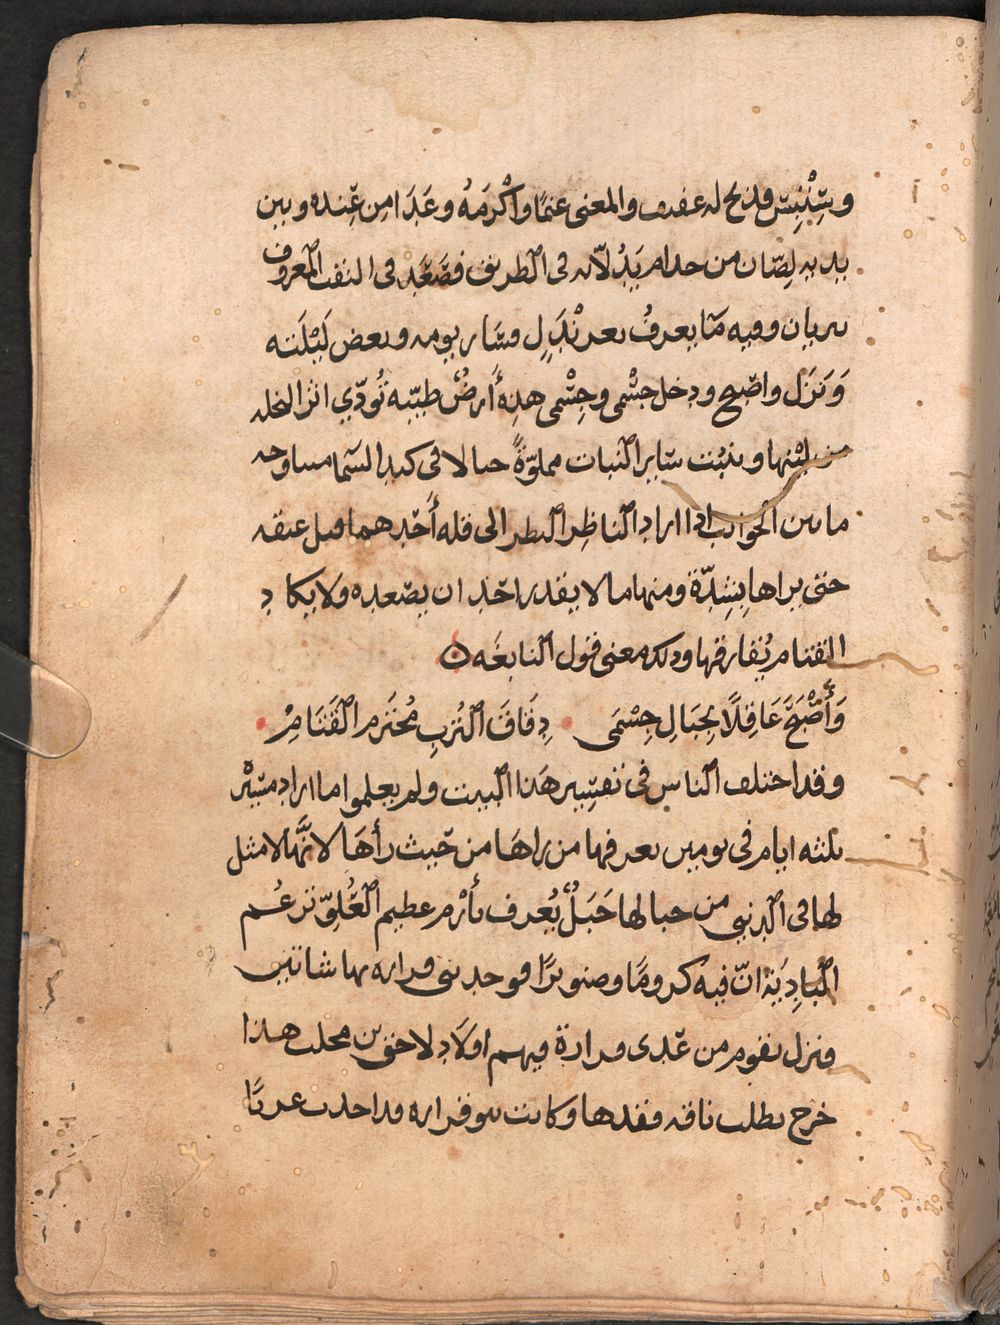 وسِنْبِسٍ فذبح له عفيف والمعنى غنمًا واكْرَمَهُ وغَدَا من عِنده وبين
يديه لِصّان من جذام يَدُلّانه فى الطريق فصَعَّد فى النقب المعروف
بتربان وفيه مآ يعرف بعرنْدَلٍ وسَار يومه وبعض لَيْلَته
وَنَزَل واصْبح ودخل حِسْمى وحِسْمى هذِه أَرضٌ طيّبه تُؤدّي اثر النخله
من لِيْنها وتنبت سَاير النبات مملوّةً جبالا فى كبد السّما متناوحه
ما بين الجوانب اذا اراد الناظِر النظر الى قلة أَحَدِهما فتل عنقه
حتى يراها بِشِدّة ومنها ما لا يقدر احَد ان يصْعده ولا يكاد
القتام يُفارقها وذلك معنى قول النابغَه ن
وَأَصْبَحَ عَاقِلًا بِجِبَالِ حِسْمَى دِقَاقَ التُّرْبِ مُخْتَرِم القَتَامِ
وقد اختلف الناس فى تفسير هَذا البيت ولم يعلموا ما اراد مسِيْر
ثلثة ايام فى يومين يعرفها من يراهَا من حَيث رأهَا لانَّها لا مثل
لها فى الدني من جبالها جَبَلٌ يُعرف بأرْم عظيم العُلوّ تزعُم
البَادِيَة انّ فيه كرومًا وصنوبرًا فوجد بنى فزاره بها شاتين
فنزل بقوم من عَدى فزارة فيهم اولَاد لاحق بن محلب هذا
خرج يطلب ناقه فقدها وكانت بنو فزاره قد اخذت غزيًا